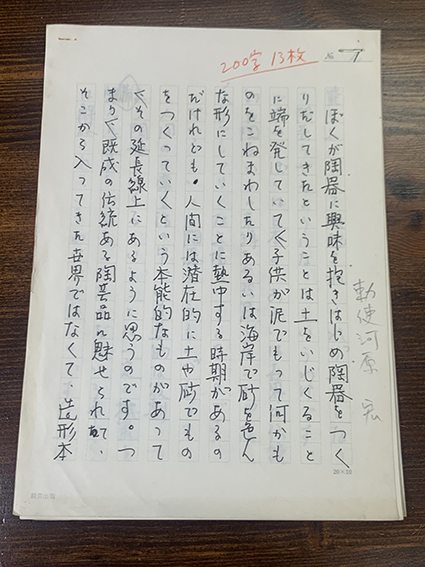 200字 13枚
№ 7
勅使河原 宏
ぼくが陶器に興味を抱きはじめ陶器をつく
りだしてきたということは土をいじくること
に端を発していて〱子供が泥でもって何かも
のをこねまわしたりあるいは海岸で砂を色ん
な形にしていくことに熱中する時期があるの
だけれども。人間には潜在的に土や砂でもの
をつくっていくという本能的なものがあって
〱その延長線上にあるように思うのです。つ
まり〱既成の伝統ある陶芸品に魅せられて、
そこから入ってきた世界ではなくて、造形本
20×10